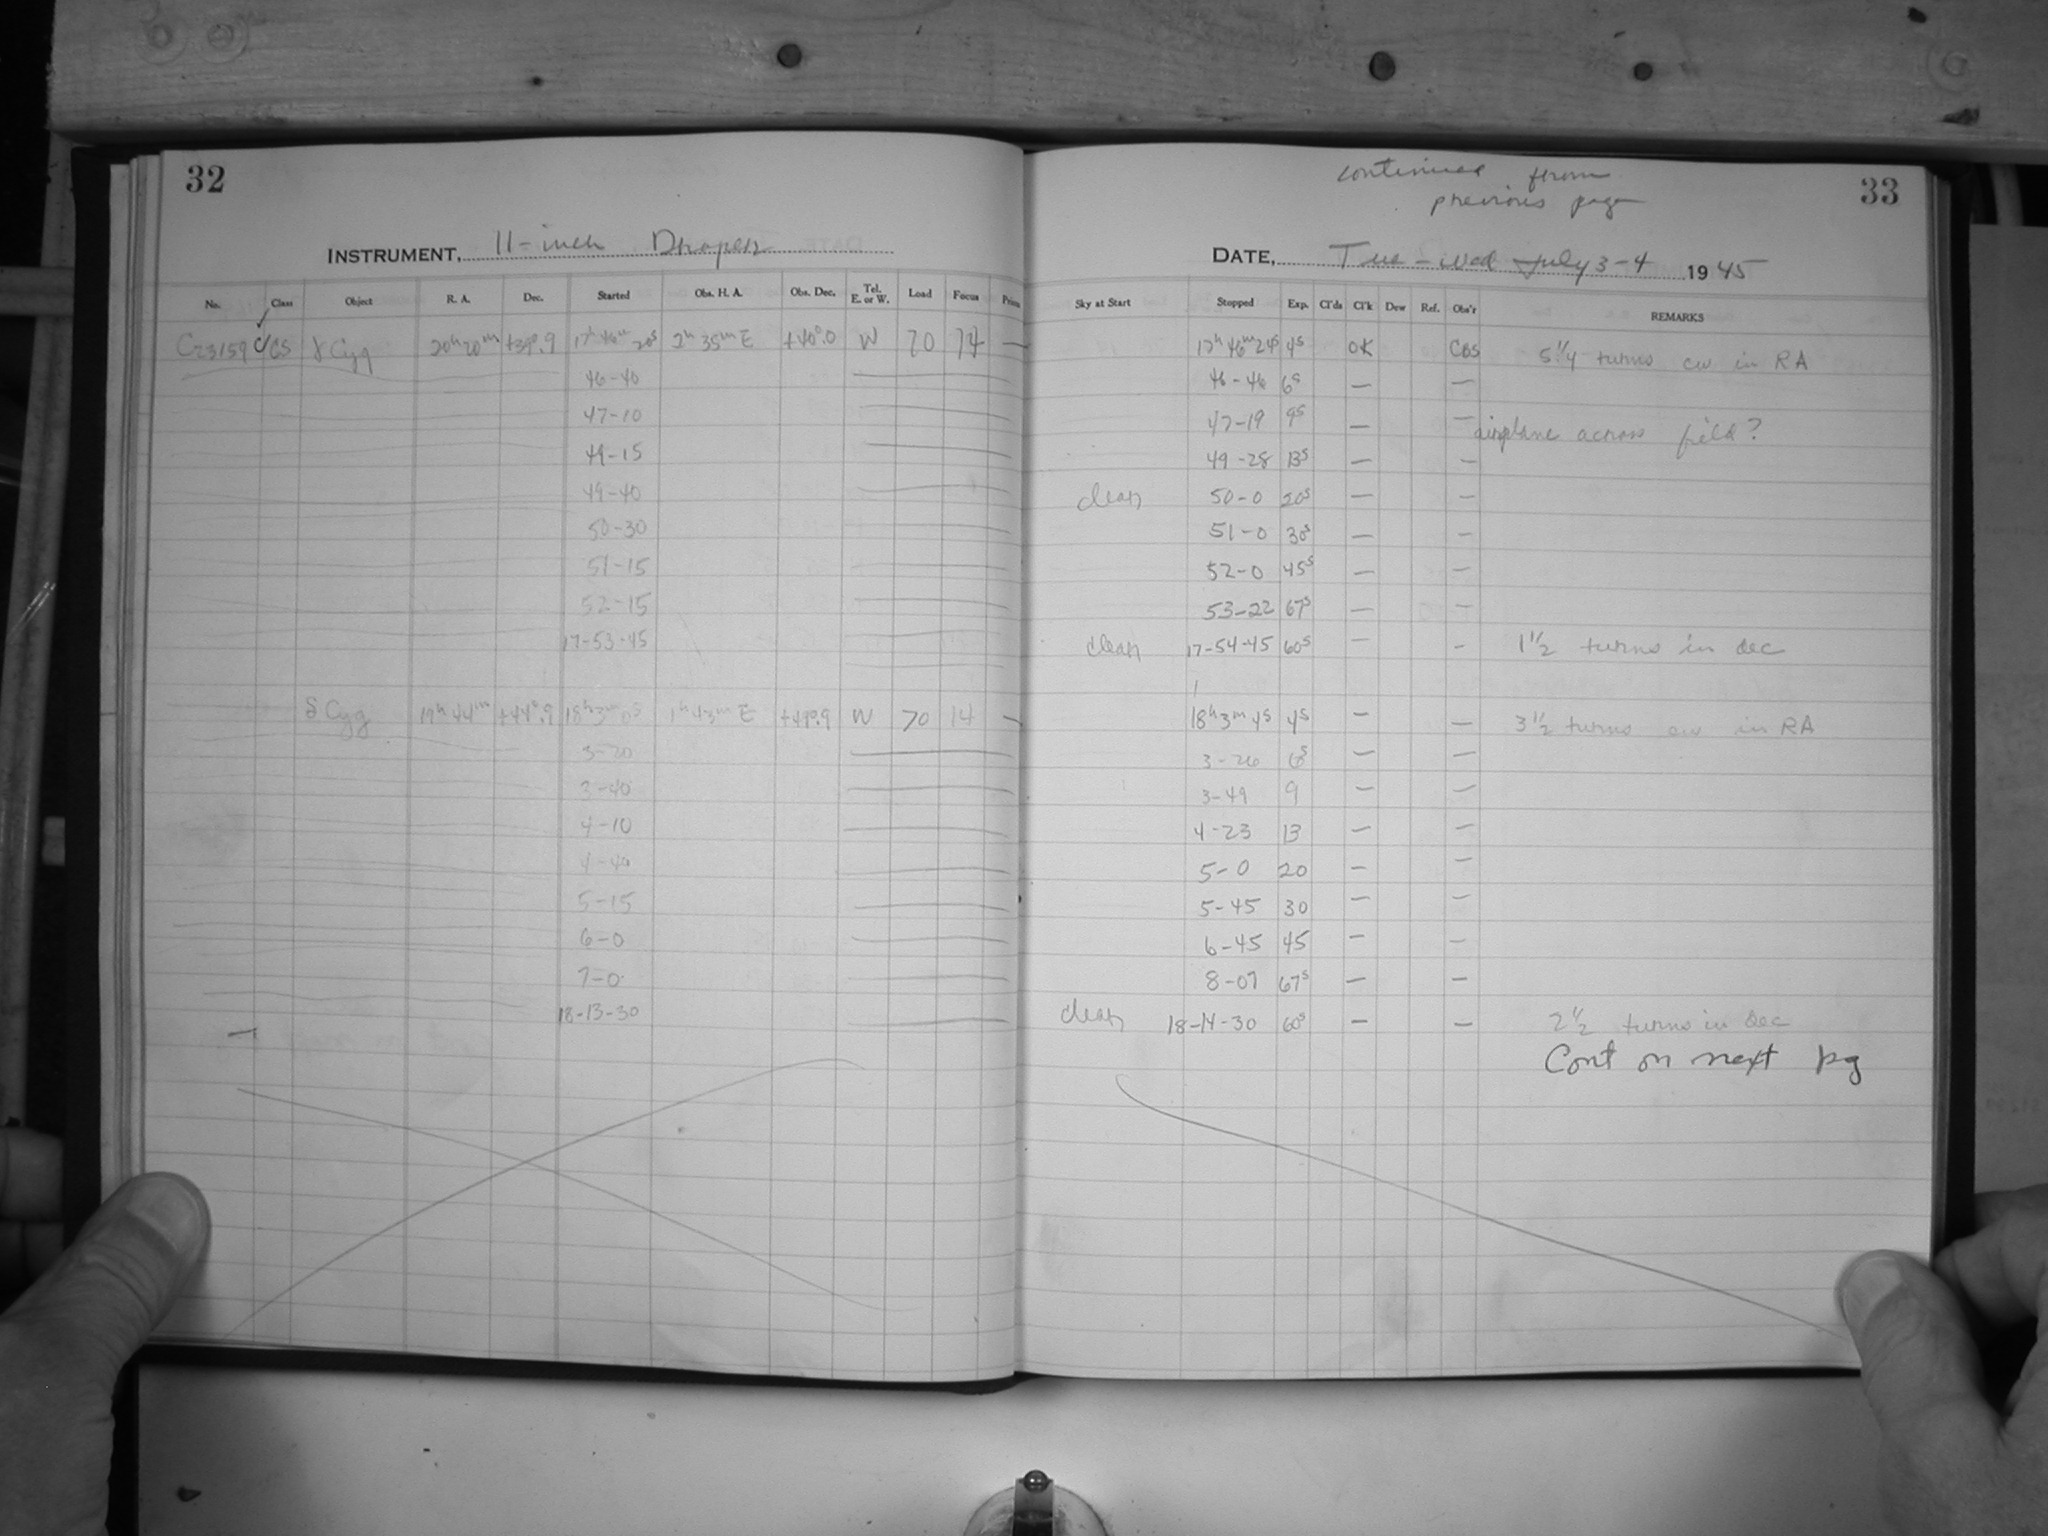 32
INSTRUMENT, 11-inch Draper
No. Class Object R. A. Dec. Started Obs. H. A. Obs. Dec. Tel. E. or W. Load Focus Prism
C23159 CS γ Cyg 20h20m +39°.9 17h46m20s 2h35mE +40°.0 W 70 14 —
46-40
47-10
49-15
49-40
50-30
51-15
52-15
17-53-45
δ Cyg 19h44m +44°.9 18h3m0s 1h43mE W 70 14 —
3-20
3-40
4-10
4-40
5-15
6-0
7-0
18-13-30
continued from
previous page
33
DATE, Tue-Wed July 3-4 1945
Sky at Start Stopped Exp. Cl'ds Cl'k Dew Ref. Obs'r REMARKS
17h46m24s 4s OK CBS 5 1/4 turns cw in RA
46-46 6s — —
47-19 9s — — airplane across field?
49-28 13s — —
clear 50-0 20s — —
51-0 30s — —
52-0 45s — —
53-22 67s — —
clear 17-54-45 60s — — 1 1/2 turns in dec
18h3m4s 4s — — 3 1/2 turns cw in RA
3-26 6s — —
3-49 9 — —
4-23 13 — —
5-0 20 — —
5-45 30 — —
6-45 45 — —
8-07 67s — —
clear 18-14-30 60s — — 2 1/2 turns in Dec
Cont on next pg